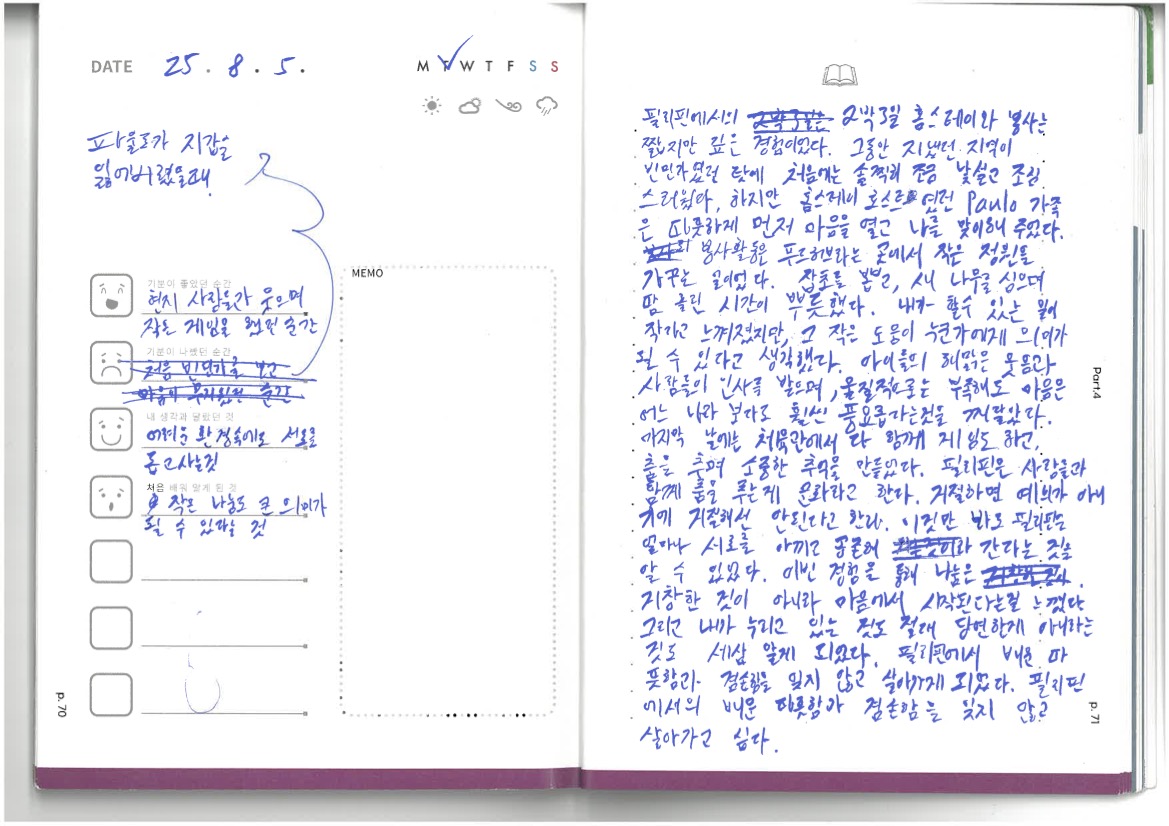 DATE 25. 8. 5.
M T W T F S S
파울로가 지갑을
잃어버렸을때.
기분이 좋았던 순간
현지 사람들과 웃으며
작은 게임을 했던 순간
기분이 나빴던 순간
처음 빈민가를 보고
마음이 무거웠던 순간
내 생각과 달랐던 것
어려운 환경속에도 서로를
돕고사는것
처음 배워 알게 된 것
작은 나눔도 큰 의미가
될 수 있다는 것
MEMO
p.70
필리핀에서의 2박3일은 2박3일 홈스테이와 봉사는
짧지만 깊은 경험이었다. 그동안 지냈던 지역이
빈민가였던 탓에 처음에는 솔직히 조금 낯설고 조심
스러웠다, 하지만 홈스테이 호스트였던 Paulo 가족
은 따뜻하게 먼저 마음을 열고 나를 맞이해 주었다.
봉사활동은 푸드허브라는 곳에서 작은 정원을
가꾸는 일이었다. 잡초를 뽑고, 새 나무를 심으며
땀 흘린 시간이 뿌듯했다. 내가 할수 있는 일이
작다고 느껴졌지만, 그 작은 도움이 누군가에게 의미가
될 수 있다고 생각했다. 아이들의 해맑은 웃음과
사람들의 인사를 받으며, 물질적으로는 부족해도 마음은
어느 나라 보다도 훨씬 풍요롭다는것을 깨달았다.
마지막 날에는 체육관에서 다 함께 게임도 하고,
춤을 추며 소중한 추억을 만들었다. 필리핀은 사람들과
함께 춤을 추는게 문화라고 한다. 거절하면 예의가 아니
기에 거절해선 안된다고 한다. 이것만 봐도 필리핀은
얼마나 서로를 아끼고 공존해 간다는 것을
알 수 있었다. 이번 경험을 통해 나눔은
거창한 것이 아니라 마음에서 시작된다는걸 느꼈다
그리고 내가 누리고 있는 것도 절대 당연한게 아니라는
것도 세삼 알게 되었다. 필리핀에서 배운 따
뜻함과 겸손함을 잊지 않고 살아가게 되었다. 필리핀
에서의 배운 따뜻함과 겸손함을 잊지 않고
살아가고 싶다.
Part.4
p.71